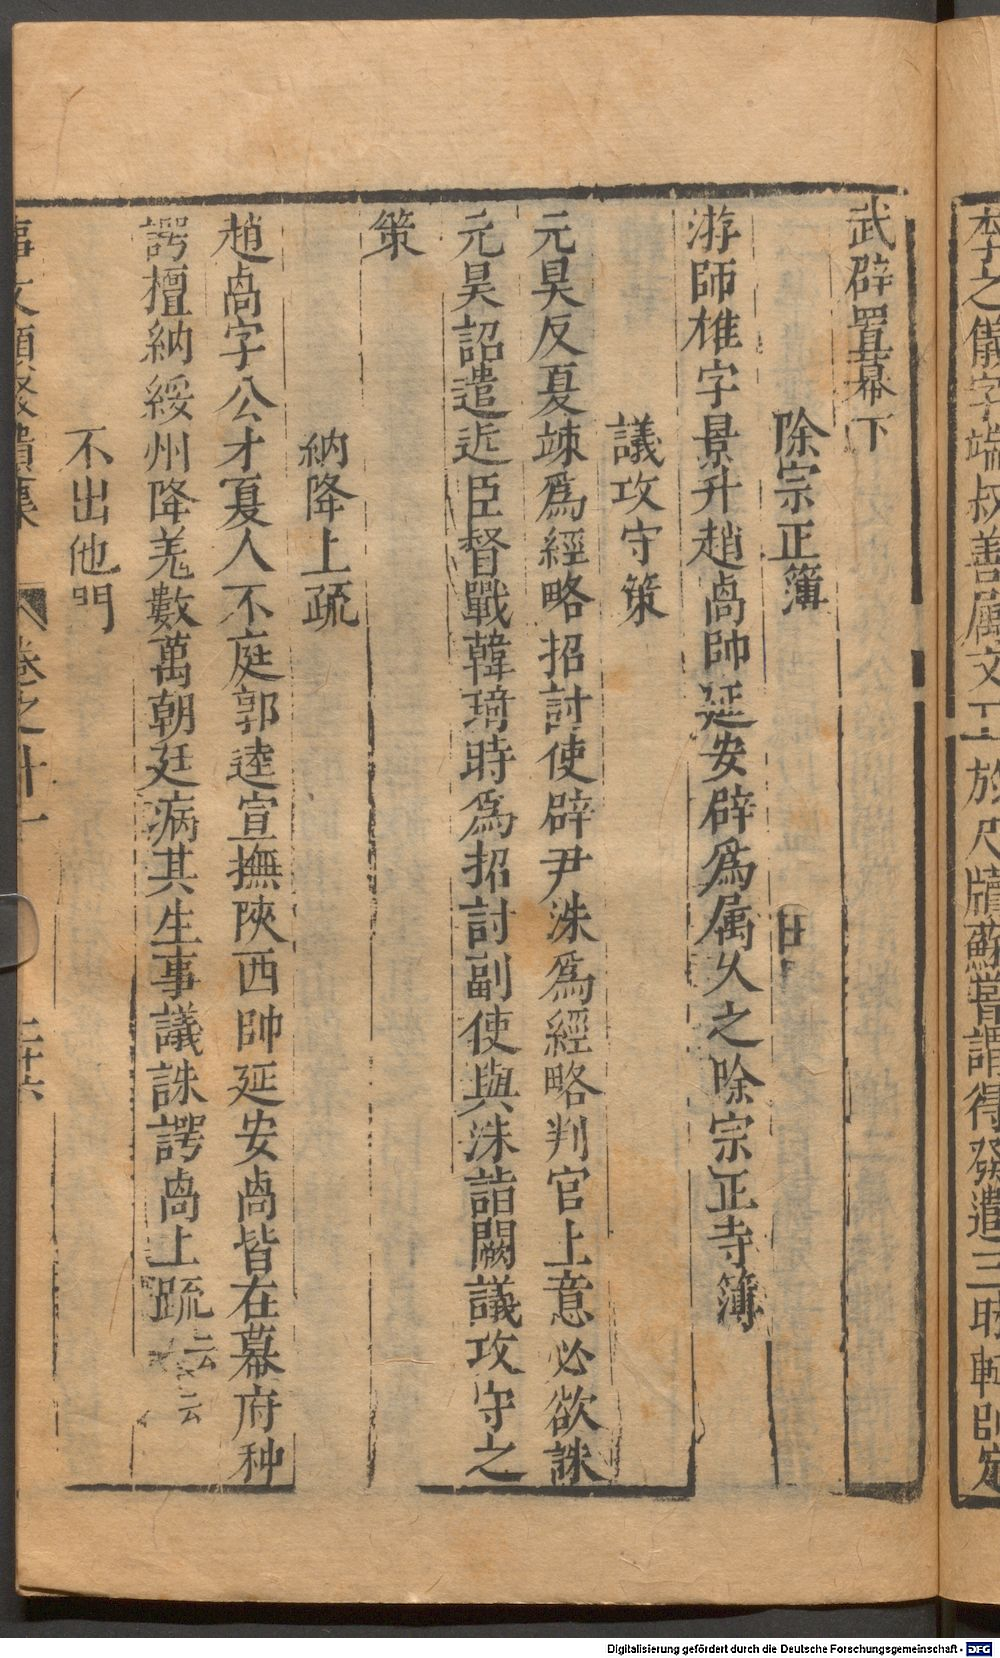 李之儀字端叔善属文工於尺牘蘇嘗謂得發遣三昧軾帥定
武辟置幕下
除宗正簿
游師雄字景升趙卨帥延安辟爲属久之除宗正寺簿
議攻守策
元昊反夏竦爲經略招討使辟尹洙爲經略判官上意必欲誅
元昊詔遣近臣督戰韓琦時爲招討副使與洙詣闕議攻守之
策
納降上疏
趙卨字公才夏人不庭郭逵宣撫陝西帥延安卨皆在幕府种
諤檀納綏州降羌數萬朝廷病其生事議誅諤卨上疏云云
不出他門
事文類聚 卷之十一 二十六
Digitalisierung gefördert durch die Deutsche Forschungsgemeinschaft - DFG